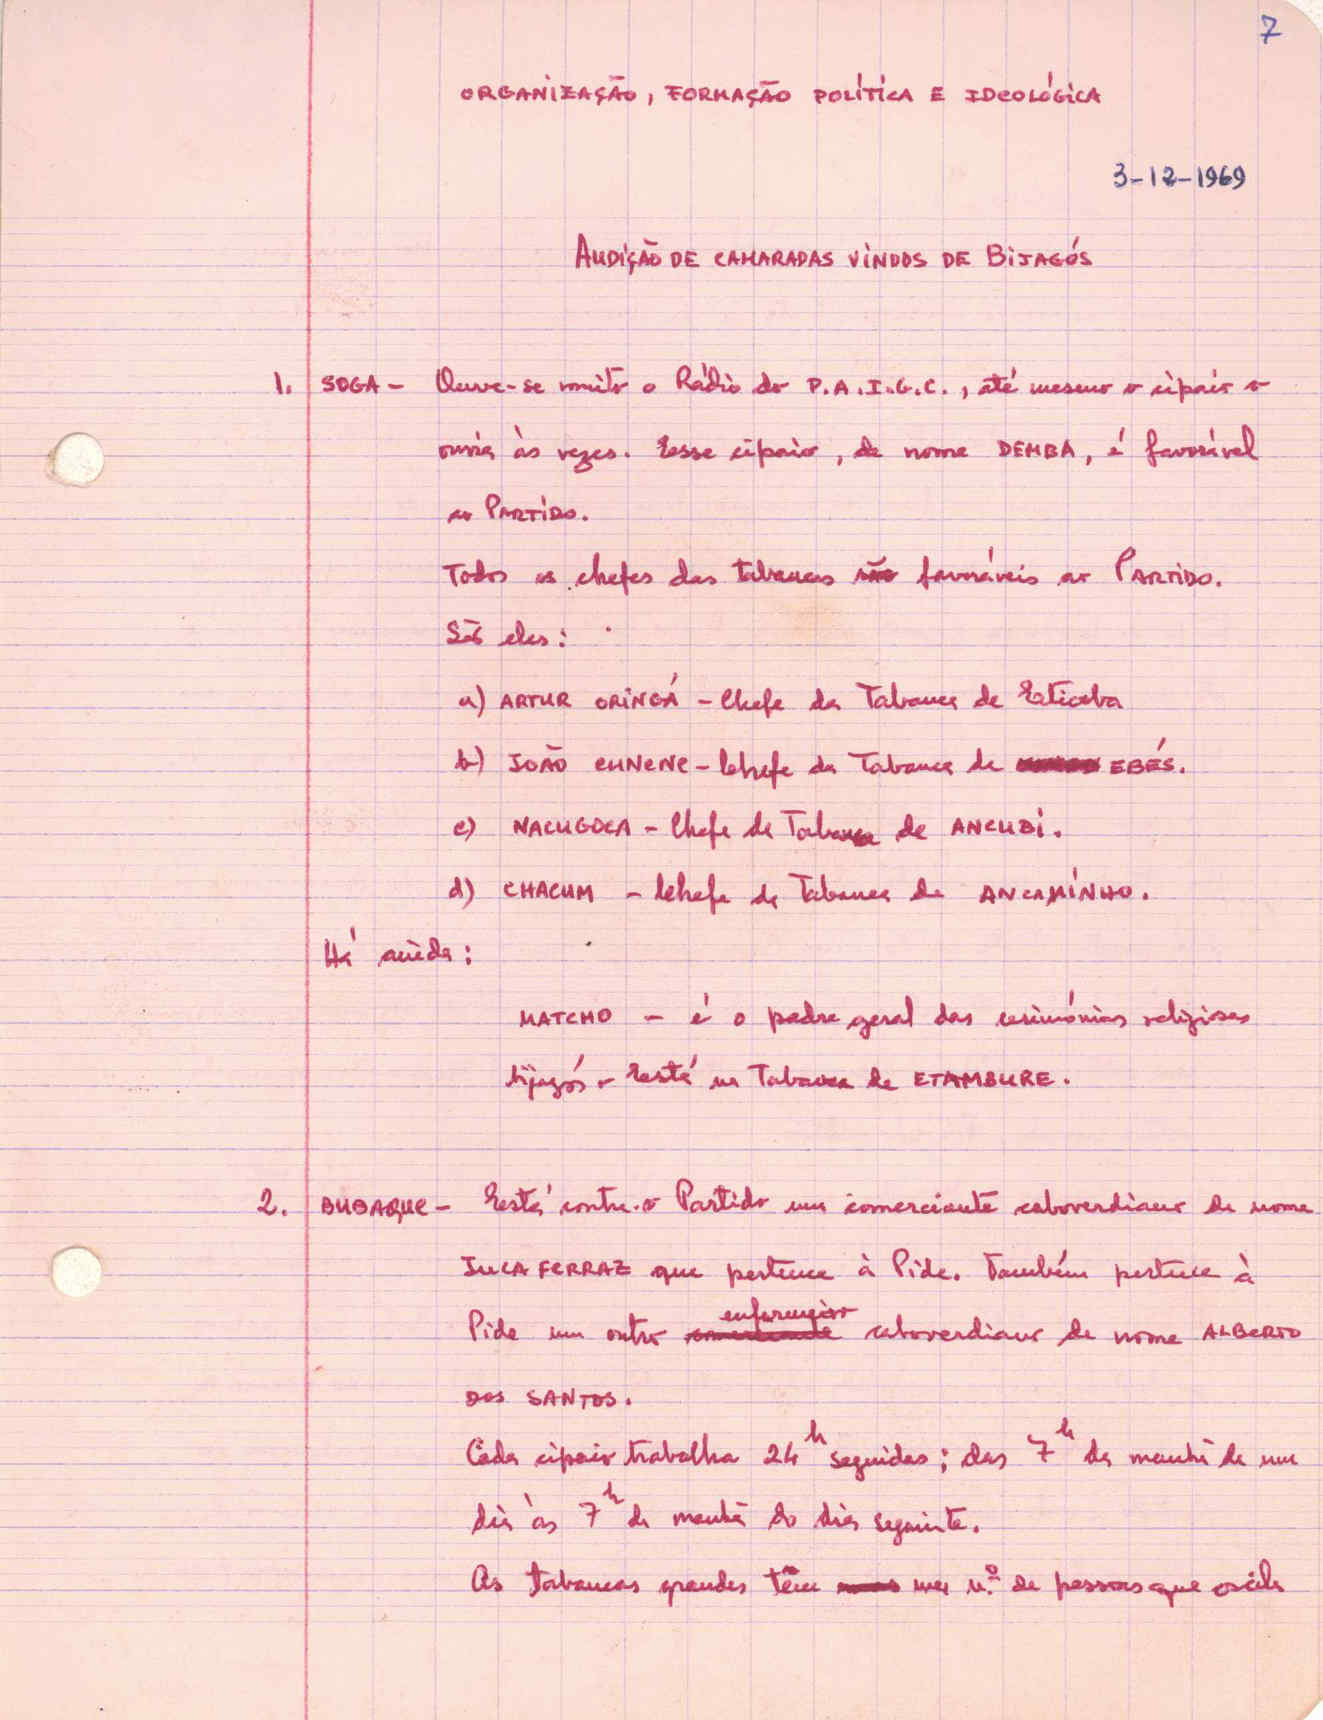 7
ORGANIZAÇÃO, FORMAÇÃO POLÍTICA E IDEOLÓGICA
3-12-1969
AUDIÇÃO DE CAMARADAS VINDOS DE BIJAGÓS
1. SOGA - Ouve-se muito o Rádio do P.A.I.G.C., até mesmo o cipaio o
ouvia às vezes. Esse cipaio, de nome DEMBA, é favorável
ao PARTIDO.
Todos os chefes das tabancas são favoráveis ao PARTIDO.
São eles:
a) ARTUR ORINGÁ - Chefe da Tabanca de
b) JOÃO CUNENE - Chefe da Tabanca de EBÉS.
c) NACUGOCA - Chefe da Tabanca de ANCUBI.
d) CHACUM - Chefe da Tabanca de ANCAMÍNHO.
Há ainda:
MATCHO - é o padre geral das cerimónias religiosas
bijagós - Está na Tabanca de ETAMBURE.
2. BUBAQUE - Está contra o Partido um comerciante caboverdiano de nome
JUCA FERRAZ que pertence à Pide. Também pertence à
Pide um outro enfermeiro caboverdiano de nome ALBERTO
DOS SANTOS.
Cada cipaio trabalha 24h seguidas; das 7h da manhã de um
dia às 7h da manhã do dia seguinte.
As tabancas grandes têm um n.º de pessoas que oscila